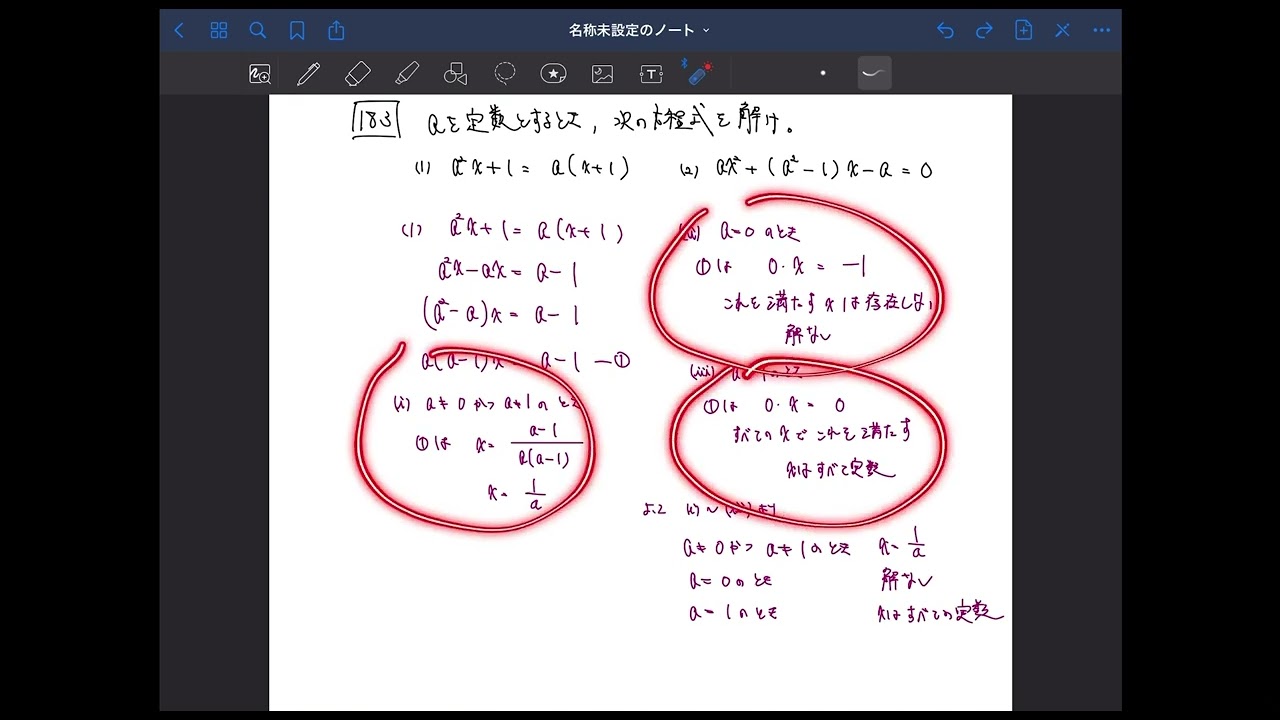 名称未設定のノート
183 aを定数とするとき，次の方程式を解け。
(1) a²x+1= a(x+1) (2) ax²+(a²-1)x-a=0
(1) a²x+1= a(x+1)
a²x-ax= a-1
(a²-a)x= a-1
a(a-1)x= a-1 —①
(i) a≠0かつa≠1のとき
①は x= a-1/a(a-1)
x= 1/a
(ii) a=0のとき
①は 0・x = -1
これを満たすxは存在しない
解なし
(iii) a=1のとき
①は 0・x= 0
すべてのxでこれを満たす
xはすべて定数
よって (i)~(iii)より
a≠0かつ a≠1のとき x= 1/a
a=0のとき 解なし
a=1のとき xはすべての定数